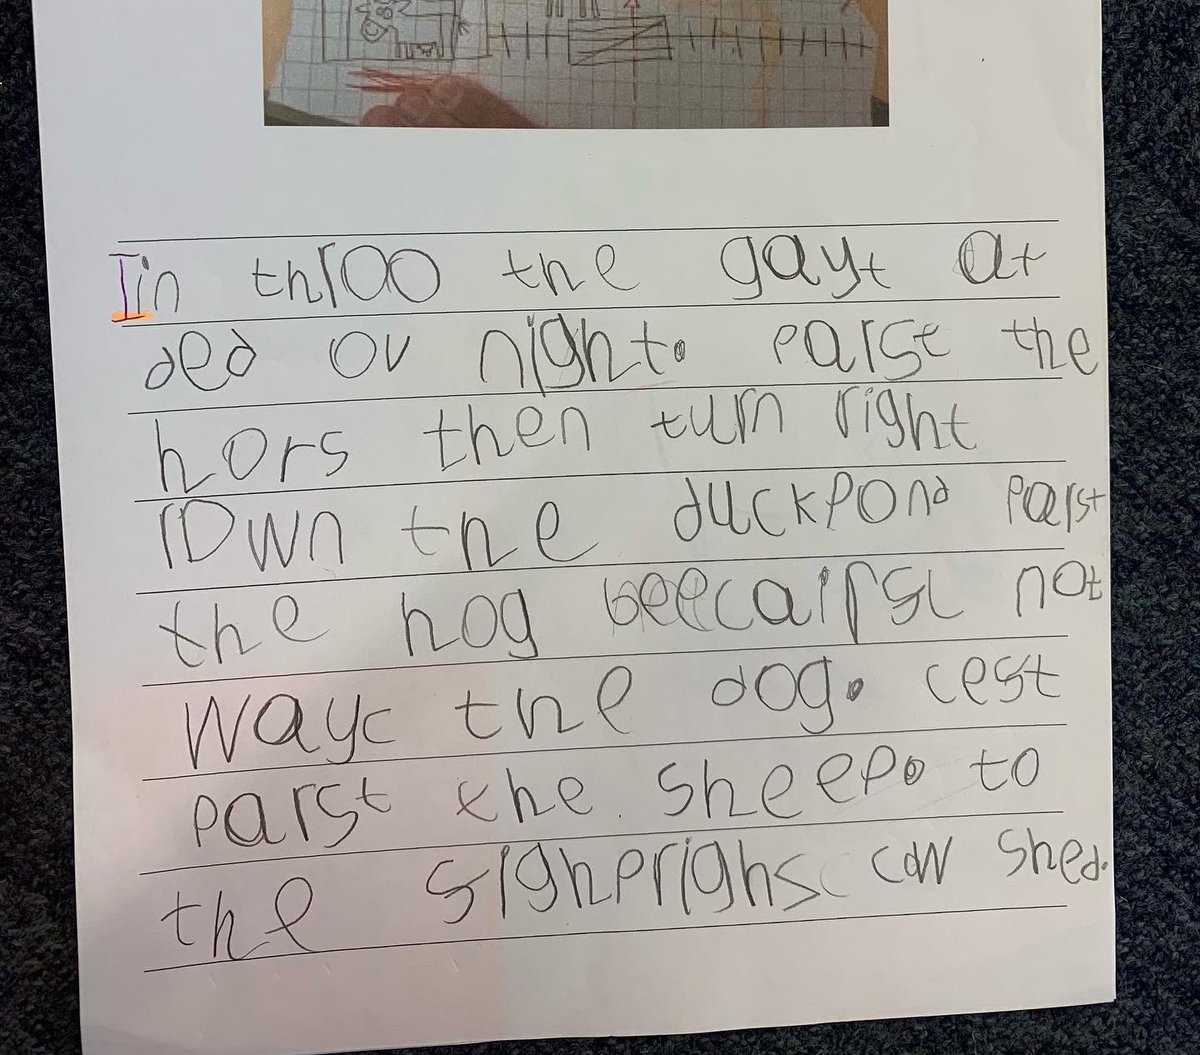 In throo the gayt at
ded ov night. parst the
hors then turn right
rown the duckpond parst
the hog beecairse not
wayc the dog. cest
parst the sheep. to
the sighprighsc cow shed.